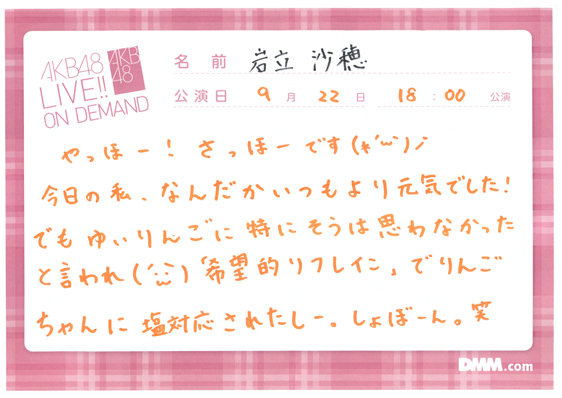 AKB48
LIVE!!
ON DEMAND
AKB
48
名前 岩立 沙穂
公演日 9月22日 18:00公演
やっほー！さっほーです(*'ω')ﾉ
今日の私、なんだかいつもより元気でした！
でもゆいりんごに特にそうは思わなかった
と言われ(´ω`)「希望的リフレイン」でりんご
ちゃんに塩対応されたしー。しょぼーん。笑
DMM.com